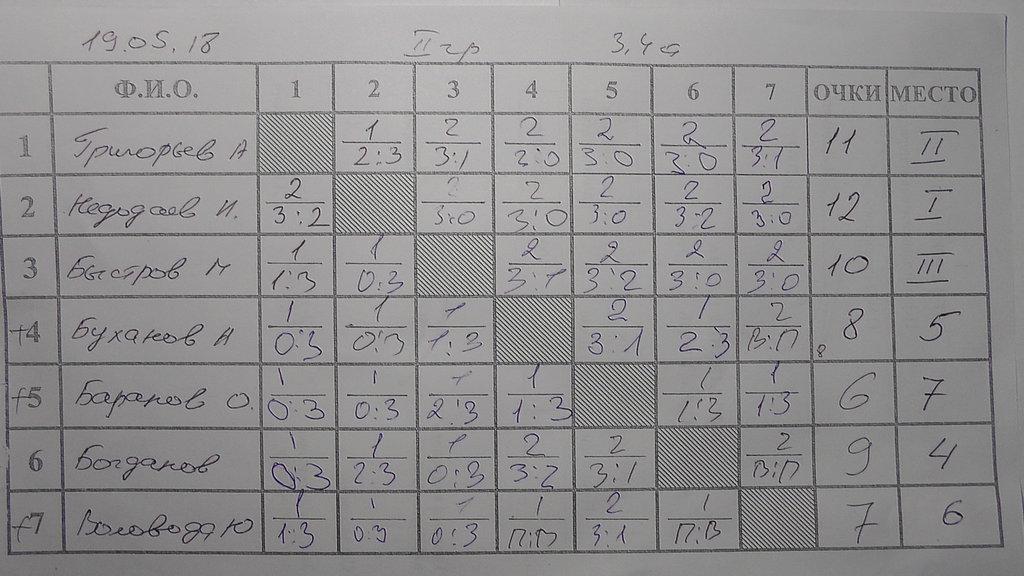 19.05.18 II гр 3,4 а
Ф.И.О. 1 2 3 4 5 6 7 ОЧКИ МЕСТО
1 Григорьев А 1 2:3 2 3:1 2 3:0 2 3:0 2 3:0 2 3:1 11 II
2 И. 2 3:2 2 3:0 2 3:0 2 3:0 2 3:2 2 3:0 12 I
3 Быстров М 1 1:3 1 0:3 2 3:1 2 3:2 2 3:0 2 3:0 10 III
+4 Буханов А 1 0:3 1 0:3 1 1:3 2 3:1 1 2:3 2 В:П 8 8 5
+5 Баранов О. 1 0:3 1 0:3 1 2:3 1 1:3 1 1:3 1 1:3 6 7
6 Богданов 1 0:3 1 2:3 1 0:3 2 3:2 2 3:1 2 В:П 9 4
+7 Воловода Ю 1 1:3 1 0:3 1 0:3 1 П:В 2 3:1 1 П:В 7 6